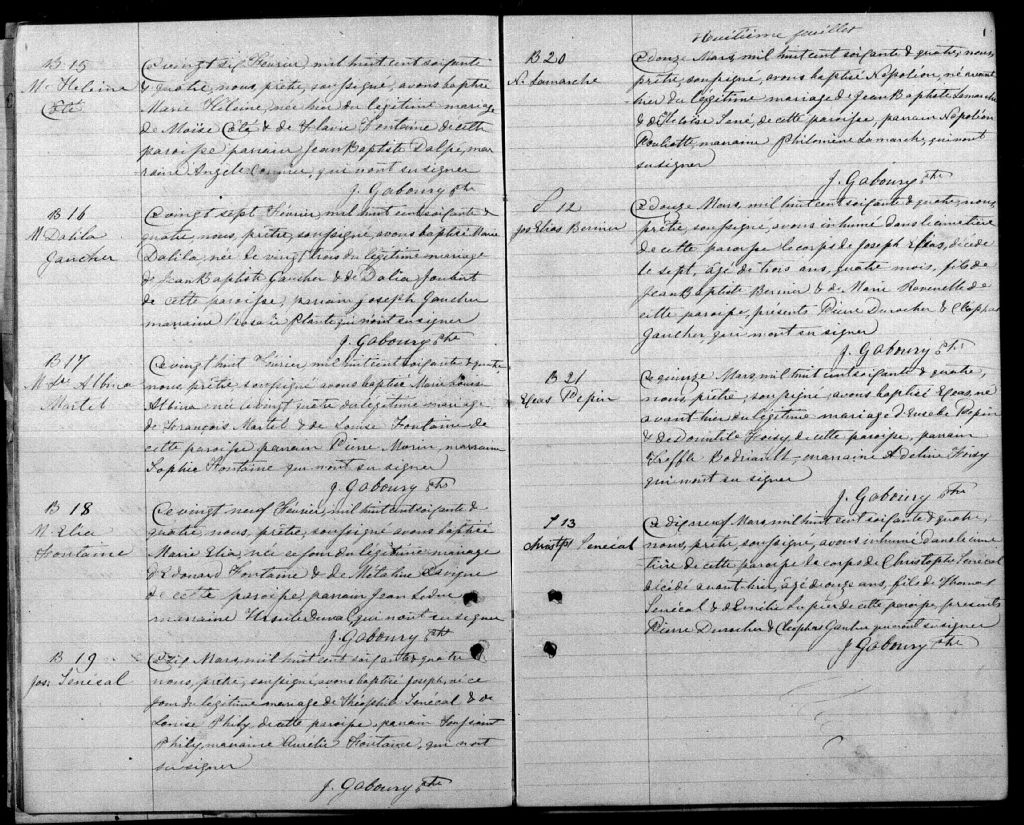 B 15
M. Helène
Coté
Ce vingt six Février, mil huit cent soixante
& quatre, nous, prêtre, soussigné, avons baptisé
Marie Hélène, née hier du légitime mariage
de Moïse Coté & de Flavie Fontaine de cette
paroisse parrain Jean Baptiste Dalpé, mar
raine Angèle, qui n'ont su signer
J. Gaboury Ptre
B 16
M Dalila
Gaucher
Ce vingt sept Février, mil huit cent soixante &
quatre, nous, prêtre, soussigné, avons baptisé Marie
Dalila, née le vingt trois du légitime mariage
de Jean Baptiste Gaucher & de Dalia Joubert
de cette paroisse, parrain Joseph Gaucher
marraine Rosalie Plante qui n'ont su signer
J. Gaboury Ptre
B 17
M Lse Albina
Martel
Ce vingt huit Février, mil huit cent soixante & quatre
nous, prêtre, soussigné avons baptisé Marie Louise
Albina née le vingt du légitime mariage
de François Martel & de Louise Fontaine de
cette paroisse parrain Pierre Morin, marraine
Sophie Fontaine qui n'ont su signer
J. Gaboury Ptre
B 18
M. Elia
Fontaine
Ce vingt neuf Février, mil huit cent soixante &
quatre, nous, prêtre, soussigné avons baptisé
Marie Elia, née ce jour du légitime mariage
d'Edouard Fontaine & de Métaline Lavigne
de cette paroisse, parrain Jean Leduc
marraine Ursule Duval, qui n'ont su signer
J. Gaboury Ptre
B 19
Jos. Sénécal
Ce six Mars, mil huit cent soixante & quatre
nous, prêtre, soussigné, avons baptisé Joseph, né ce
jour du légitime mariage de Théophile Sénécal & de
Louise Phily, de cette paroisse, parrain Toussaint
Phily, marraine Aurélie Fontaine, qui n'ont
su signer
J. Gaboury Ptre
Huitième feuillet
1
B 20
N. Lamarche
Ce douze Mars, mil huit cent soixante & quatre, nous,
prêtre, soussigné, avons baptisé Napoléon, né avant
hier du légitime mariage de Jean Baptiste Lamarche
& d'Héloïse Sené, de cette paroisse, parrain Napoléon
Rouliotte, marraine Philomène Lamarche, qui n'ont
su signer
J. Gaboury Ptre
S 12
Jos Elias Bernier
Ce douze Mars, mil huit cent soixante & quatre, nous,
prêtre, soussigné, avons inhumé dans le cimetière
de cette paroisse le corps de Joseph Elias, décédé
le sept, âgé de trois ans, quatre mois, fils de
Jean Baptiste Bernier & de Marie de
cette paroisse, présents Pierre Durocher & Cléophas
Gaucher, qui n'ont su signer
J. Gaboury Ptre
B 21
Pepin
Ce quinze Mars, mil huit cent soixante & quatre,
nous, prêtre, soussigné, avons baptisé né
avant hier du légitime mariage d'Eusèbe Pepin
& de Domitile Foisy, de cette paroisse, parrain
Treffle Bodriault, marraine Adeline Foisy
qui n'ont su signer
J. Gaboury Ptre
S 13
Christophe Sénécal
Ce dix neuf Mars, mil huit cent soixante & quatre,
nous, prêtre, soussigné, avons inhumé dans le cime
tière de cette paroisse le corps de Christophe Sénécal
décédé avant hier, âgé de onze ans, fils de Thomas
Sénécal & d'Emélie Lupien de cette paroisse, présents
Pierre Durocher & Cléophas Gaucher qui n'ont su signer
J. Gaboury Ptre